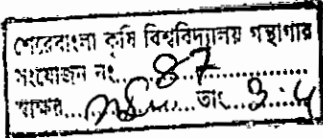 শেরেবাংলা কৃষি বিশ্ববিদ্যালয় গন্থাগার
সংযোজন নং......87..................
স্বাক্ষর...........তাং...